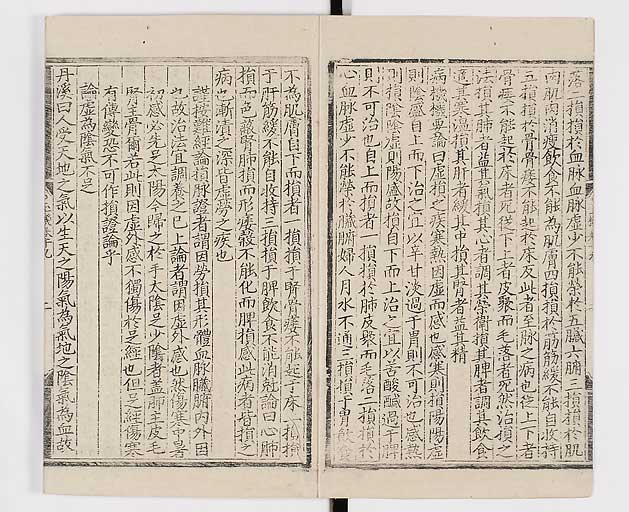 落二損損於血脉血脉虛少不能榮於五臟六腑三損損於肌
肉肌肉消瘦飲食不能為肌膚四損損於筋筋緩不能自收持
五損損於骨骨痿不能起於床反此者至脉之病也從上下者
骨痿不能起於床者死從下上者皮聚而毛落者死然治損之
法損其肺者益其氣損其心者調其榮衛損其脾者調其飲食
適其寒溫損其肝者緩其中損其腎者益其精
病機機要論曰虛損之疾寒熱因虛而感也感寒則損陽陽虛
則陰盛損自上而下治之宜以辛甘淡過于胃則不可治也感熱
則損陰陰虛則陽盛故損自下而上治之宜以苦酸鹹過于脾
則不可治也自上而損者一損損於肺皮聚而毛落二損損於
心血脉虛少不能榮於臟腑婦人月水不通三損損于胃飲食
不為肌膚自下而損者一損損于腎骨痿不能起于床二損損
于肝筋緩不能自收持三損損于脾飲食不能消尅論曰心肺
損而色𡚁腎肝損而形痿穀不能化而脾損感此病者皆損之
病也漸漬之深皆虛勞之疾也
謹按難經論損脉證者謂因勞損其形體血脉臟腑內外因
也故治法宜調養之已上論者謂因虛外感也然傷寒中暑
初感必先足太陽今歸之於手太陰足少陰者蓋肺主皮毛
腎主骨爾若此則因虛外感不獨傷於足經也但足經傷寒
有傳變恐不可作損證論乎
論虛為陰氣不足
丹溪曰人受天地之氣以生天之陽氣為氣地之陰氣為血故